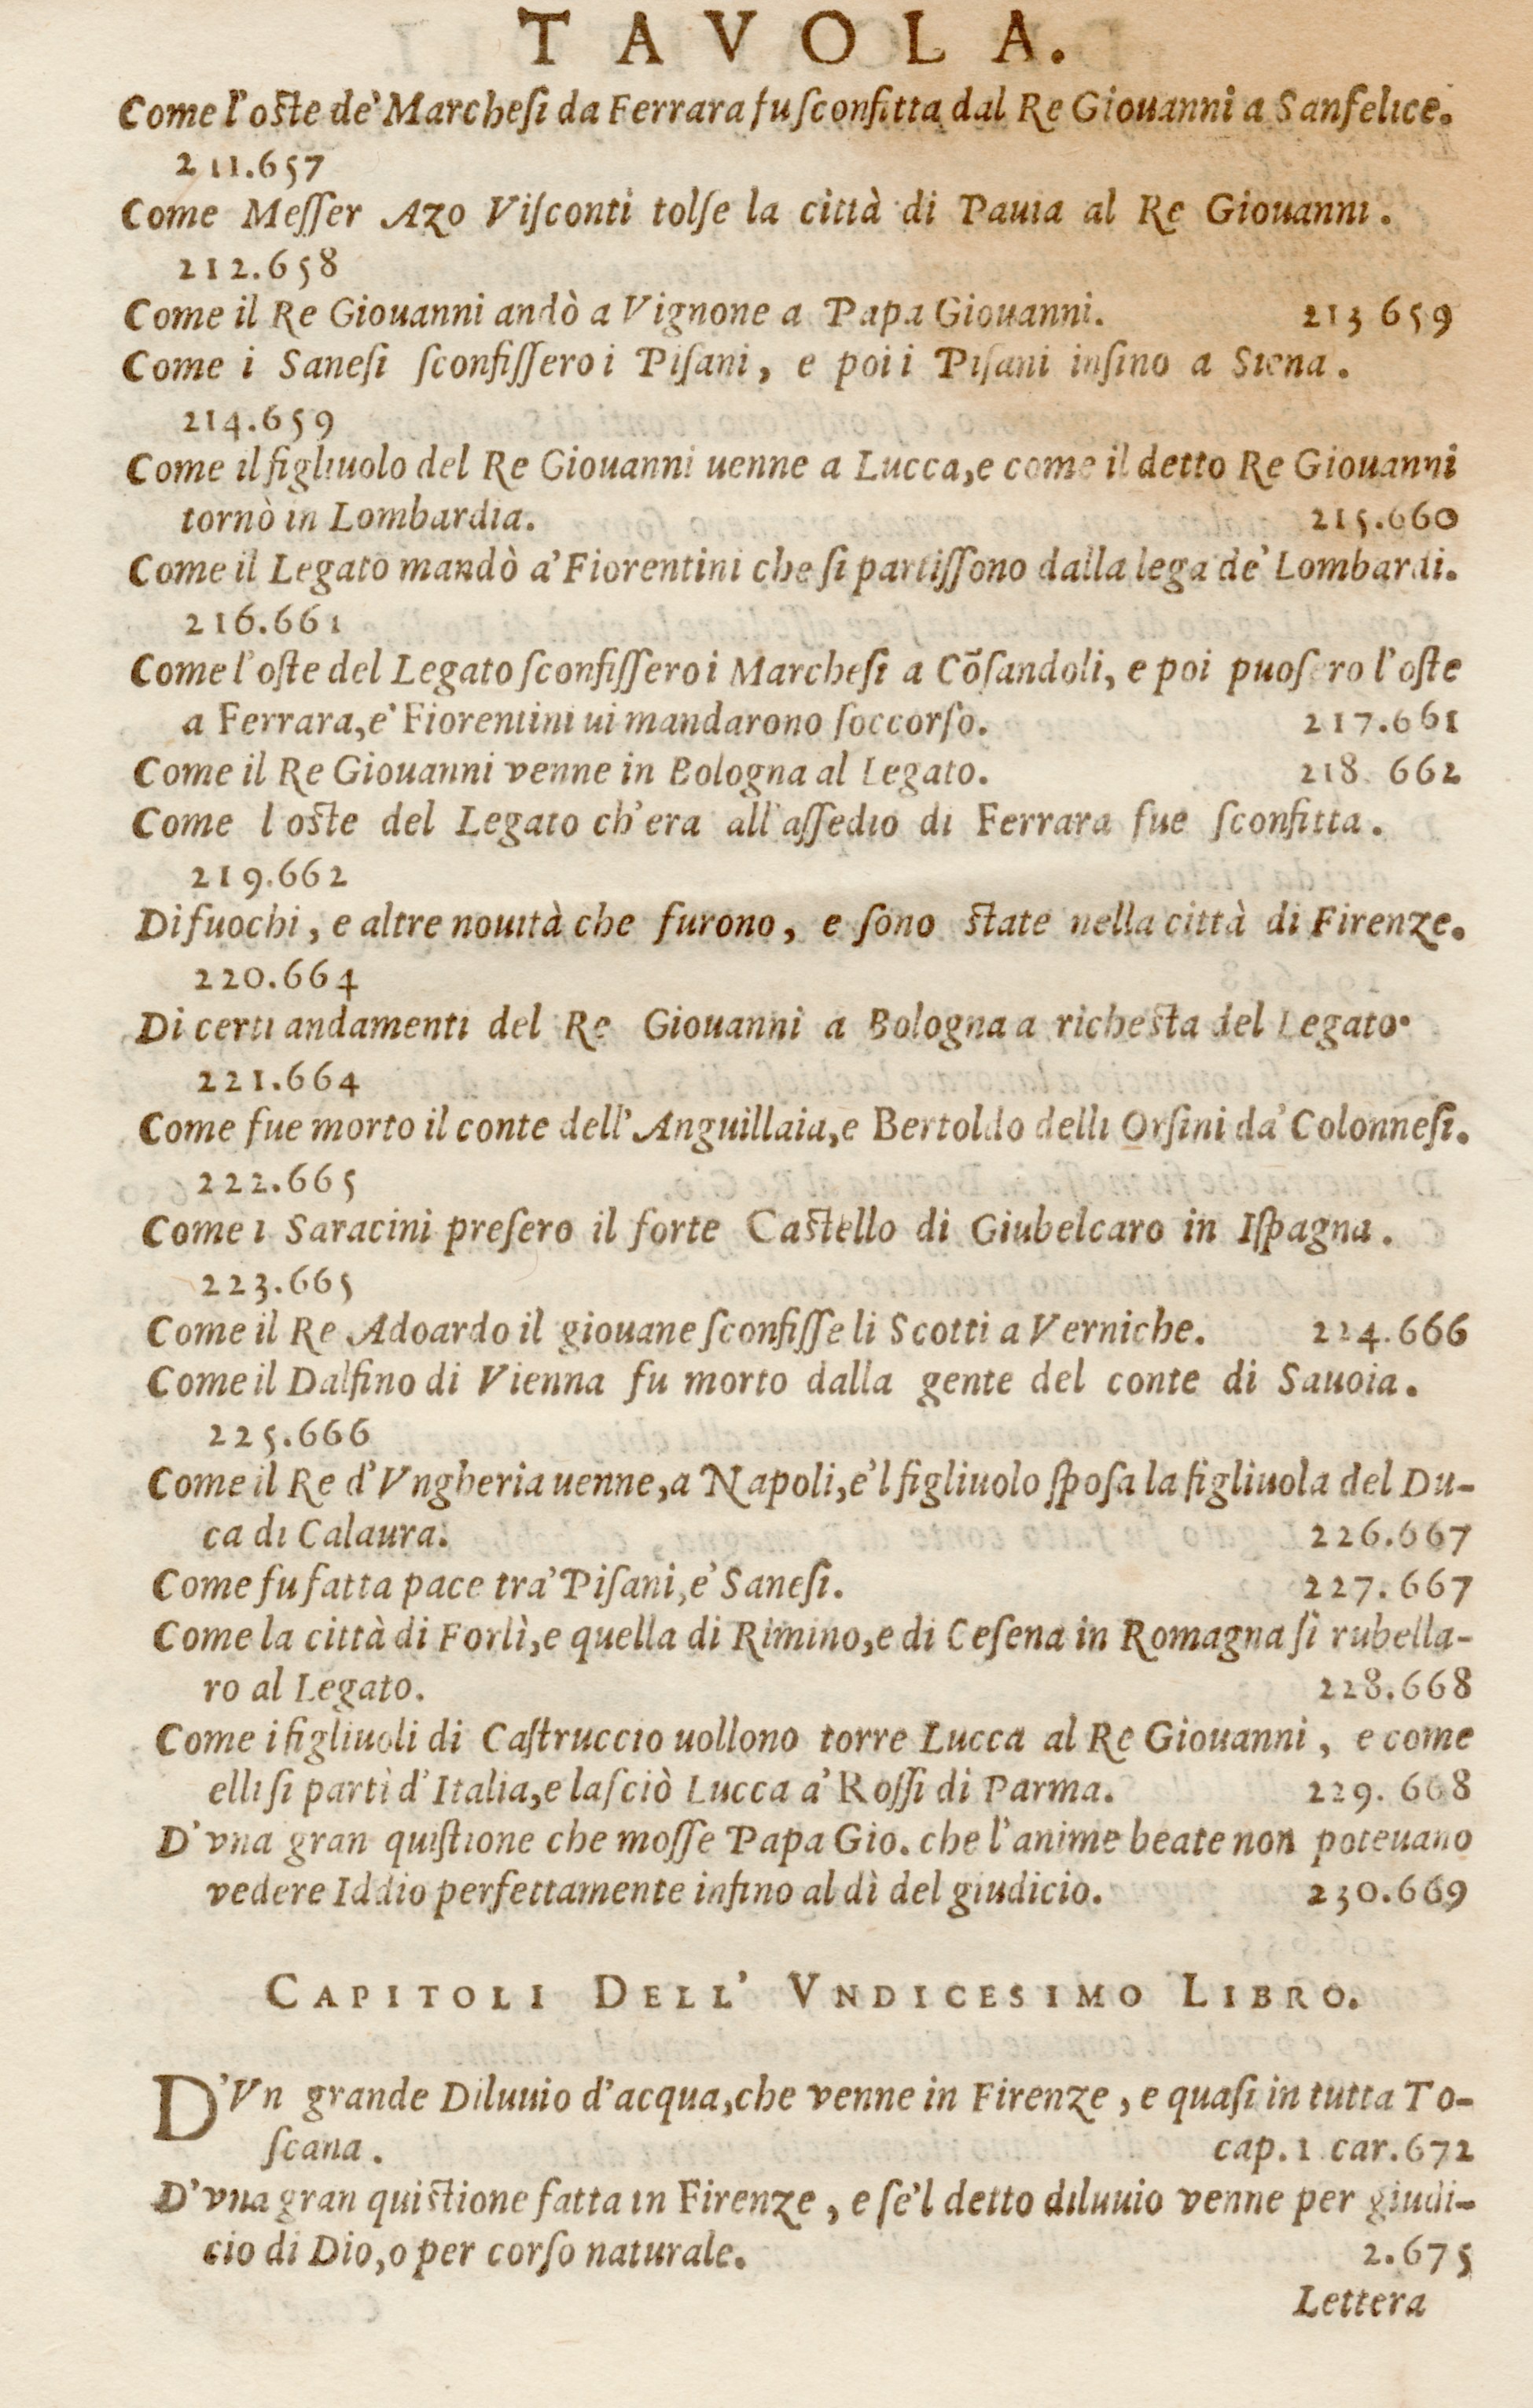 TAVOLA.
Come l'oste de' Marchesi da Ferrara fu sconfitta dal Re Giouanni a Sanfelice.
211.657
Come Messer Azo Visconti tolse la città di Pauia al Re Giouanni.
212.658
Come il Re Giouanni andò a Vignone a Papa Giouanni. 213 659
Come i Sanesi sconfissero i Pisani, e poi i Pisani insino a Siena.
214.659
Come il figliuolo del Re Giouanni uenne a Lucca,e come il detto Re Giouanni
tornò in Lombardia. 215.660
Come il Legato mandò a' Fiorentini che si partissono dalla lega de' Lombardi.
216.661
Come l'oste del Legato sconfissero i Marchesi a Cõsandoli, e poi puosero l'oste
a Ferrara,e' Fiorentini ui mandarono soccorso. 217.661
Come il Re Giouanni venne in Bologna al Legato. 218. 662
Come l oste del Legato ch'era all'assedio di Ferrara fue sconfitta.
219.662
Di fuochi, e altre nouità che furono, e sono state nella città di Firenze.
220.664
Di certi andamenti del Re Giouanni a Bologna a richesta del Legato.
221.664
Come fue morto il conte dell'Anguillaia,e Bertoldo delli Orsini da' Colonnesi.
222.665
Come i Saracini presero il forte Castello di Giubelcaro in Ispagna.
223.665
Come il Re Adoardo il giouane sconfisse li Scotti a Verniche. 224.666
Come il Dalfino di Vienna fu morto dalla gente del conte di Sauoia.
225.666
Come il Re d'Vngheria uenne,a Napoli,e'l figliuolo sposa la figliuola del Du-
ca di Calaura. 226.667
Come fu fatta pace tra' Pisani,e' Sanesi. 227.667
Come la città di Forlì,e quella di Rimino,e di Cesena in Romagna si rubella-
ro al Legato. 228.668
Come i figliuoli di Castruccio uollono torre Lucca al Re Giouanni, e come
elli si partì d'Italia,e lasciò Lucca a' Rossi di Parma. 229. 668
D'vna gran quistione che mosse Papa Gio. che l'anime beate non poteuano
vedere Iddio perfettamente infino al dì del giudicio. 230.669
CAPITOLI DELL' VNDICESIMO LIBRO.
D'Vn grande Diluuio d'acqua,che venne in Firenze, e quasi in tutta To-
scana. cap. 1 car. 672
D'vna gran quistione fatta in Firenze, e se'l detto diluuio venne per giudi-
cio di Dio,o per corso naturale. 2.675
Lettera